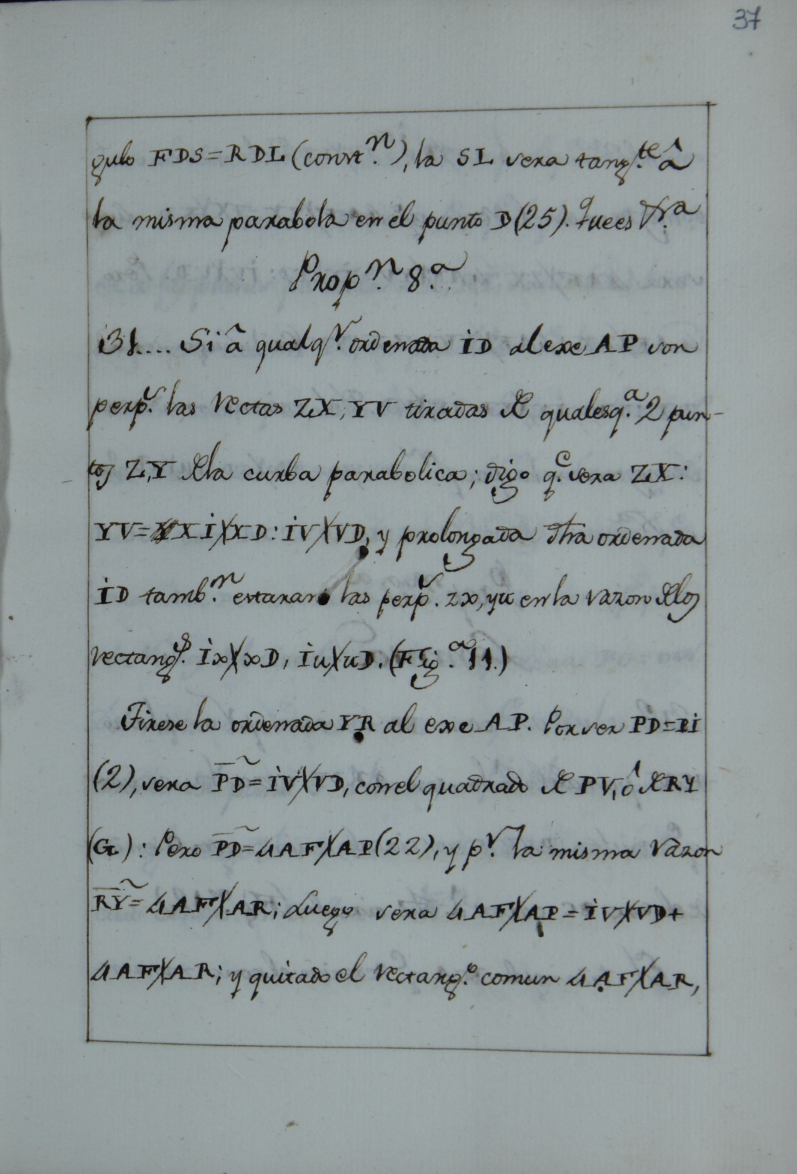 37
gulo FDS=RDL (const.n), la SL sera tang.te â
la misma parabola en el punto D(25). Que es &.a
Prop.n 8.a
31.... Si â qualq.r ordenada ID al exe AP son
perp.s las rectas ZX, YV tiradas de qualesq.a 2 pun-
tos Z,Y de la curba parabolica; digo q.e sera ZX:
YV= XI╳XD: IV╳VD, y prolongada dha ordenada
ID tamb.n estaran las perp.s zx, yu en la razon de los
rectang.s Ix╳xD, Iu╳uD. (Fig.a 11.)
Tirese la ordenada YR al exe AP. Por ser PD=PI
(2), sera PD~= IV╳VD, con el quadrado de PV, ô de RY
(G.): Pero PD~= 4AF╳AP(22), y p.r la misma razon
RY~= 4AF╳AR; Luego sera 4AF╳AP = IV╳VD+
4AF╳AR; y quitado el rectang.o comun 4AF╳AR,